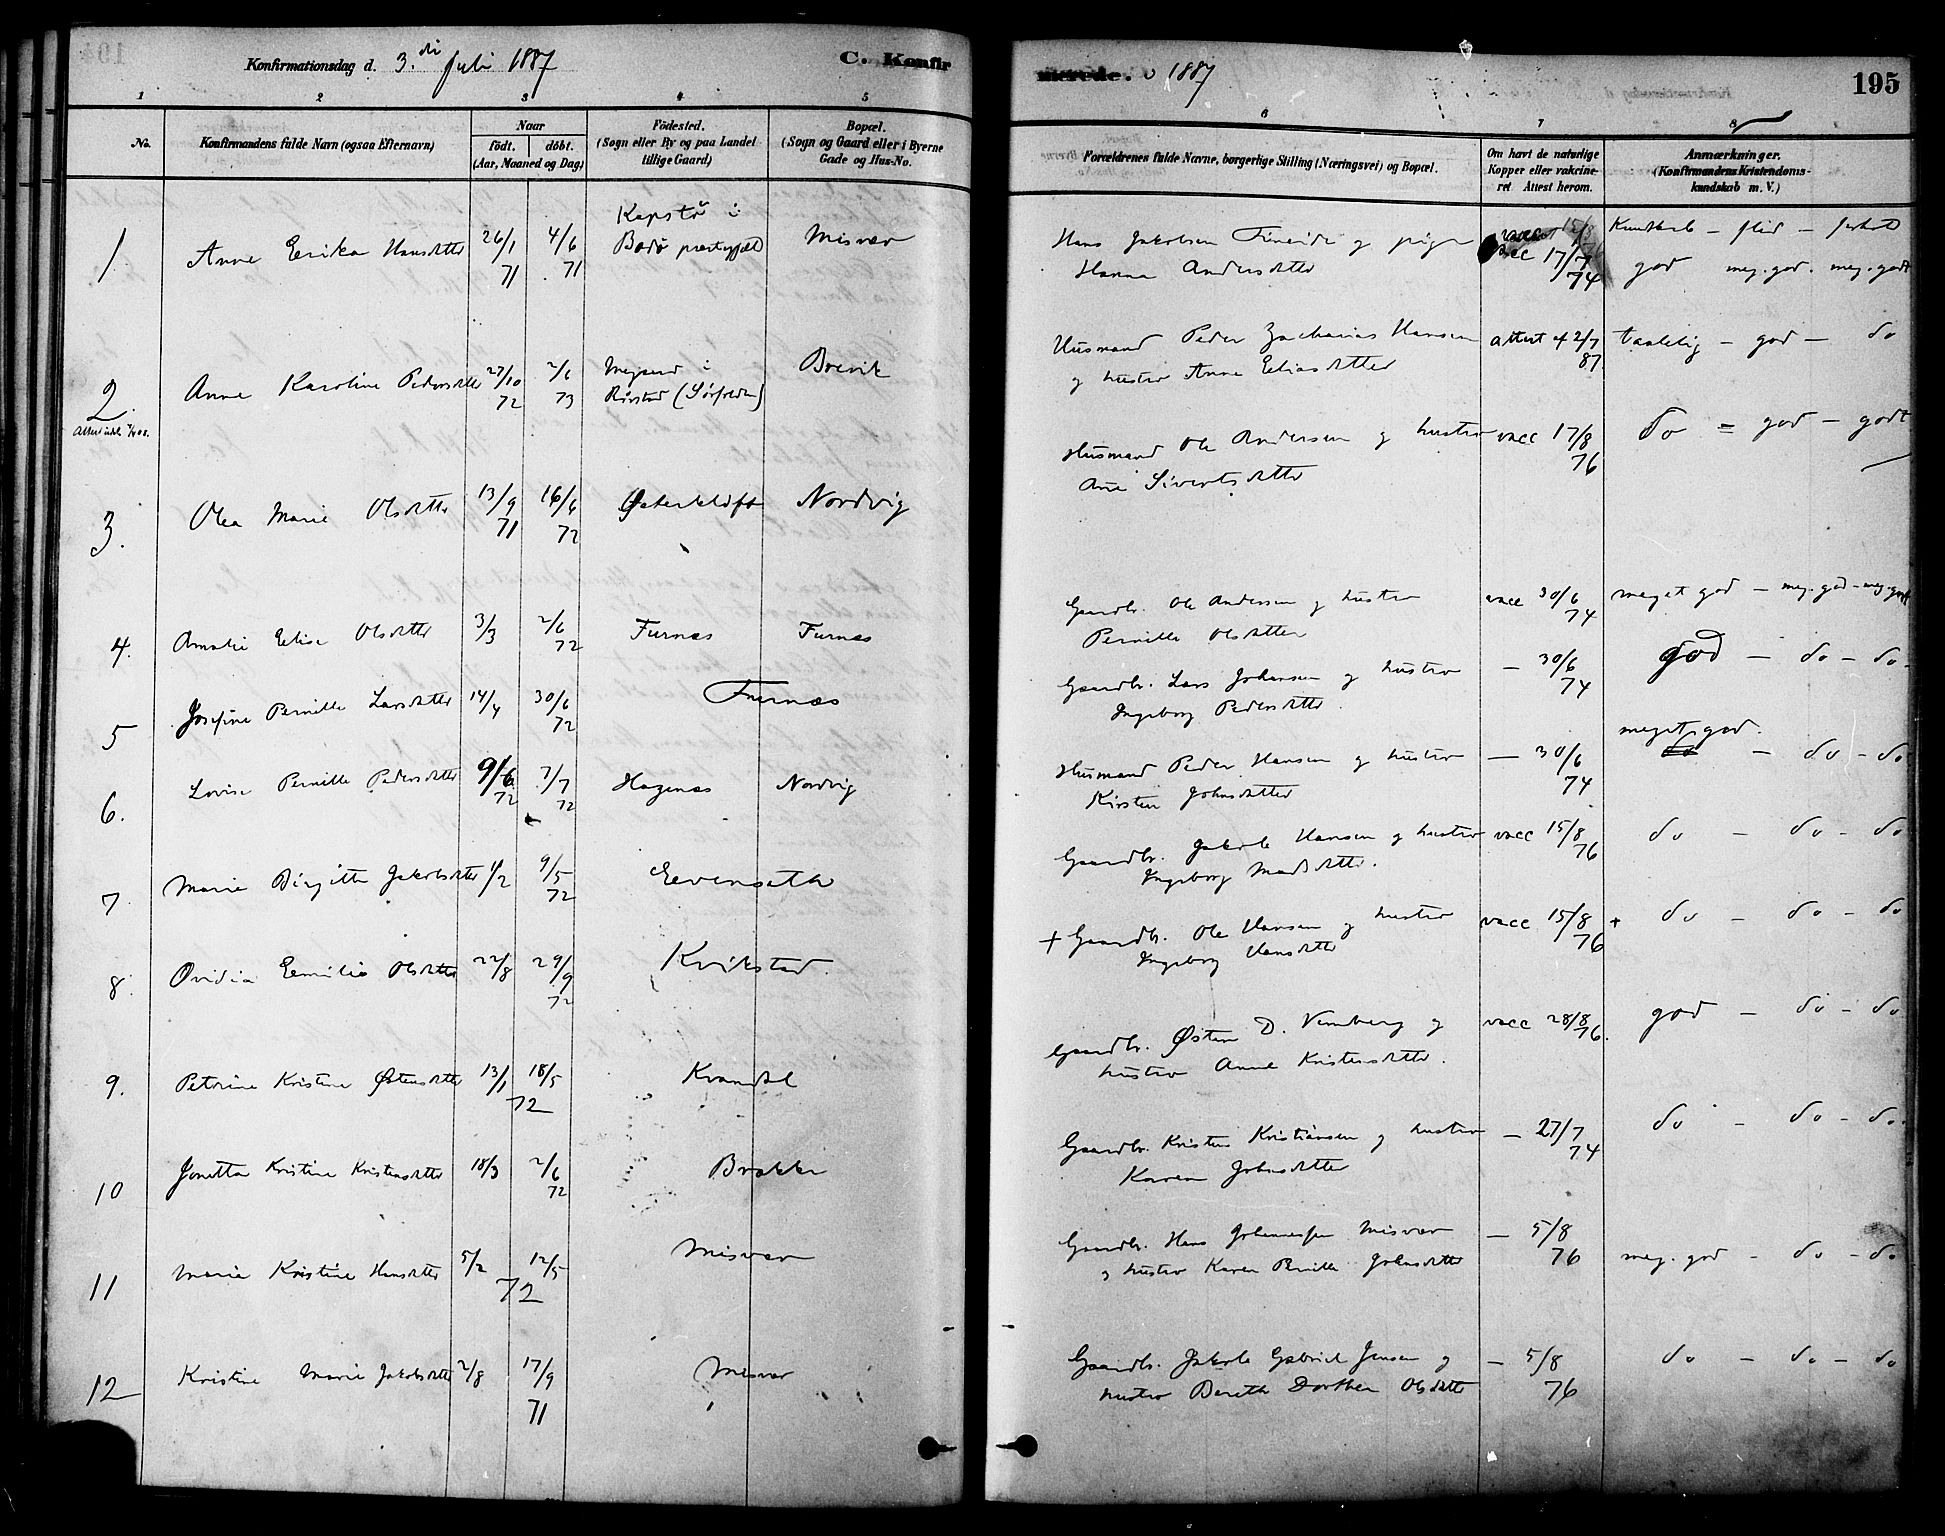 Konfirmationsdag d. 3.die Juli 1887
C. Konfir
1 2 3 4 5
No.
Konfirmandens fulde Navn (ogsaa Efternavn)
Naar
födt. döbt.
(Aar, Maaned og Dag)
Födested.
(Sogn eller By og paa Landet
tillige Gaard)
Bopæl.
(Sogn og Gaard eller i Byerne
Gade og Hus-No.
1 Anne Erika Hansdatter 26/1 71 4/6 71 Kapstø i
Bodø præstegjæld Misvær
2. Anne Karoline Pedersdatter 27/10 72 2/6 73
Rørstad (Sørfolden) Brevik
3. Olea Marie Olsdatter 13/9 71 16/6 72 Østerkløft Nordvig
4. Amalie Elise Olsdatter 3/3 2/6 72 Furnæs Furnæs
5 Josefine Pernille Larsdatter 14/4 30/6 72 Furnæs
6. Lovise Pernille Pedersdatter 9/6 72 7/7 72 Hagenæs Nordvig
7. Marie Birgitte Jakobsdatter 4/2 9/5 72 Eevenseth
8. Ovidia Emilie Olsdatter 22/8 29/9 72 Kvikstad.
9. Petrine Kristine Østensdatter 13/1 18/5 72 Kvandal
10 Jonetta Kristine Kristensdatter 18/3 2/6 72 Brække
11 Marie Kristine Hansdatter 5/2 12/5 72 Misvær
12 Kristine Marie Jakobsdatter 2/8 17/9 71 Misvær
merede. 1887
195
6 7 8
Forældrenes fulde Navne, borgerlige Stilling (Næringsvei) og Bopæl.
Om havt de naturlige
Kopper eller vakcine-
ret Attest herom.
Anmærkninger.
(Konfirmandens Kristendoms-
kundskab m. V.)
Hans Jakobsen Fineide og pige 15/8 Kundskab – flid – forhold
Hanna Andersdatter vacc 17/7 74 god meg. god. meg. godt
Husmand Peder Zacharias Hansen attest af 2/7 87. taalelig – god – do
og hustro Anne Eliasdatter
Husmand Ole Andersen og hustro vacc 17/8 76 do = god – godt
Ane Sivertsdatter
Gaardbr. Ole Andersen og hustro vacc 30/6 74 meget god – meg. god – meg. godt
Pernille Olsdatter
Gaardbr. Lars Johansen og hustro – 30/6 74 god – do – do.
Ingeborg Pedersdatter.
meget god.
Husmand Peder Hansen og hustro – 30/6 74 do – do – do
Kirsten Johnsdatter
Gaardbr. Jakob Hansen og hustro vacc 15/8 76 do – do – do
Ingeborg Madsdatter.
+ Gaardbr. Ole Hansen og hustro vacc 15/8 76 + do – do – do
Ingeborg Hansdatter
Gaardbr. Østen D. Vemberg og vacc 28/8 76. god – do – do
hustro Anne Kristensdatter.
Gaardbr. Kristen Kristiansen og hustro – 27/7 74 do – do – do.
Karen Johnsdatter
Gaardbr. Hans Johannessen Misvær – 5/8 76 meg. god – do – do
og hustro Karen Pernille Johnsdatter
Gaardbr. Jakob Gabriel Jensen og – 5/8 76 do – do – do
hustro Bereth Dorthea Olsdatter